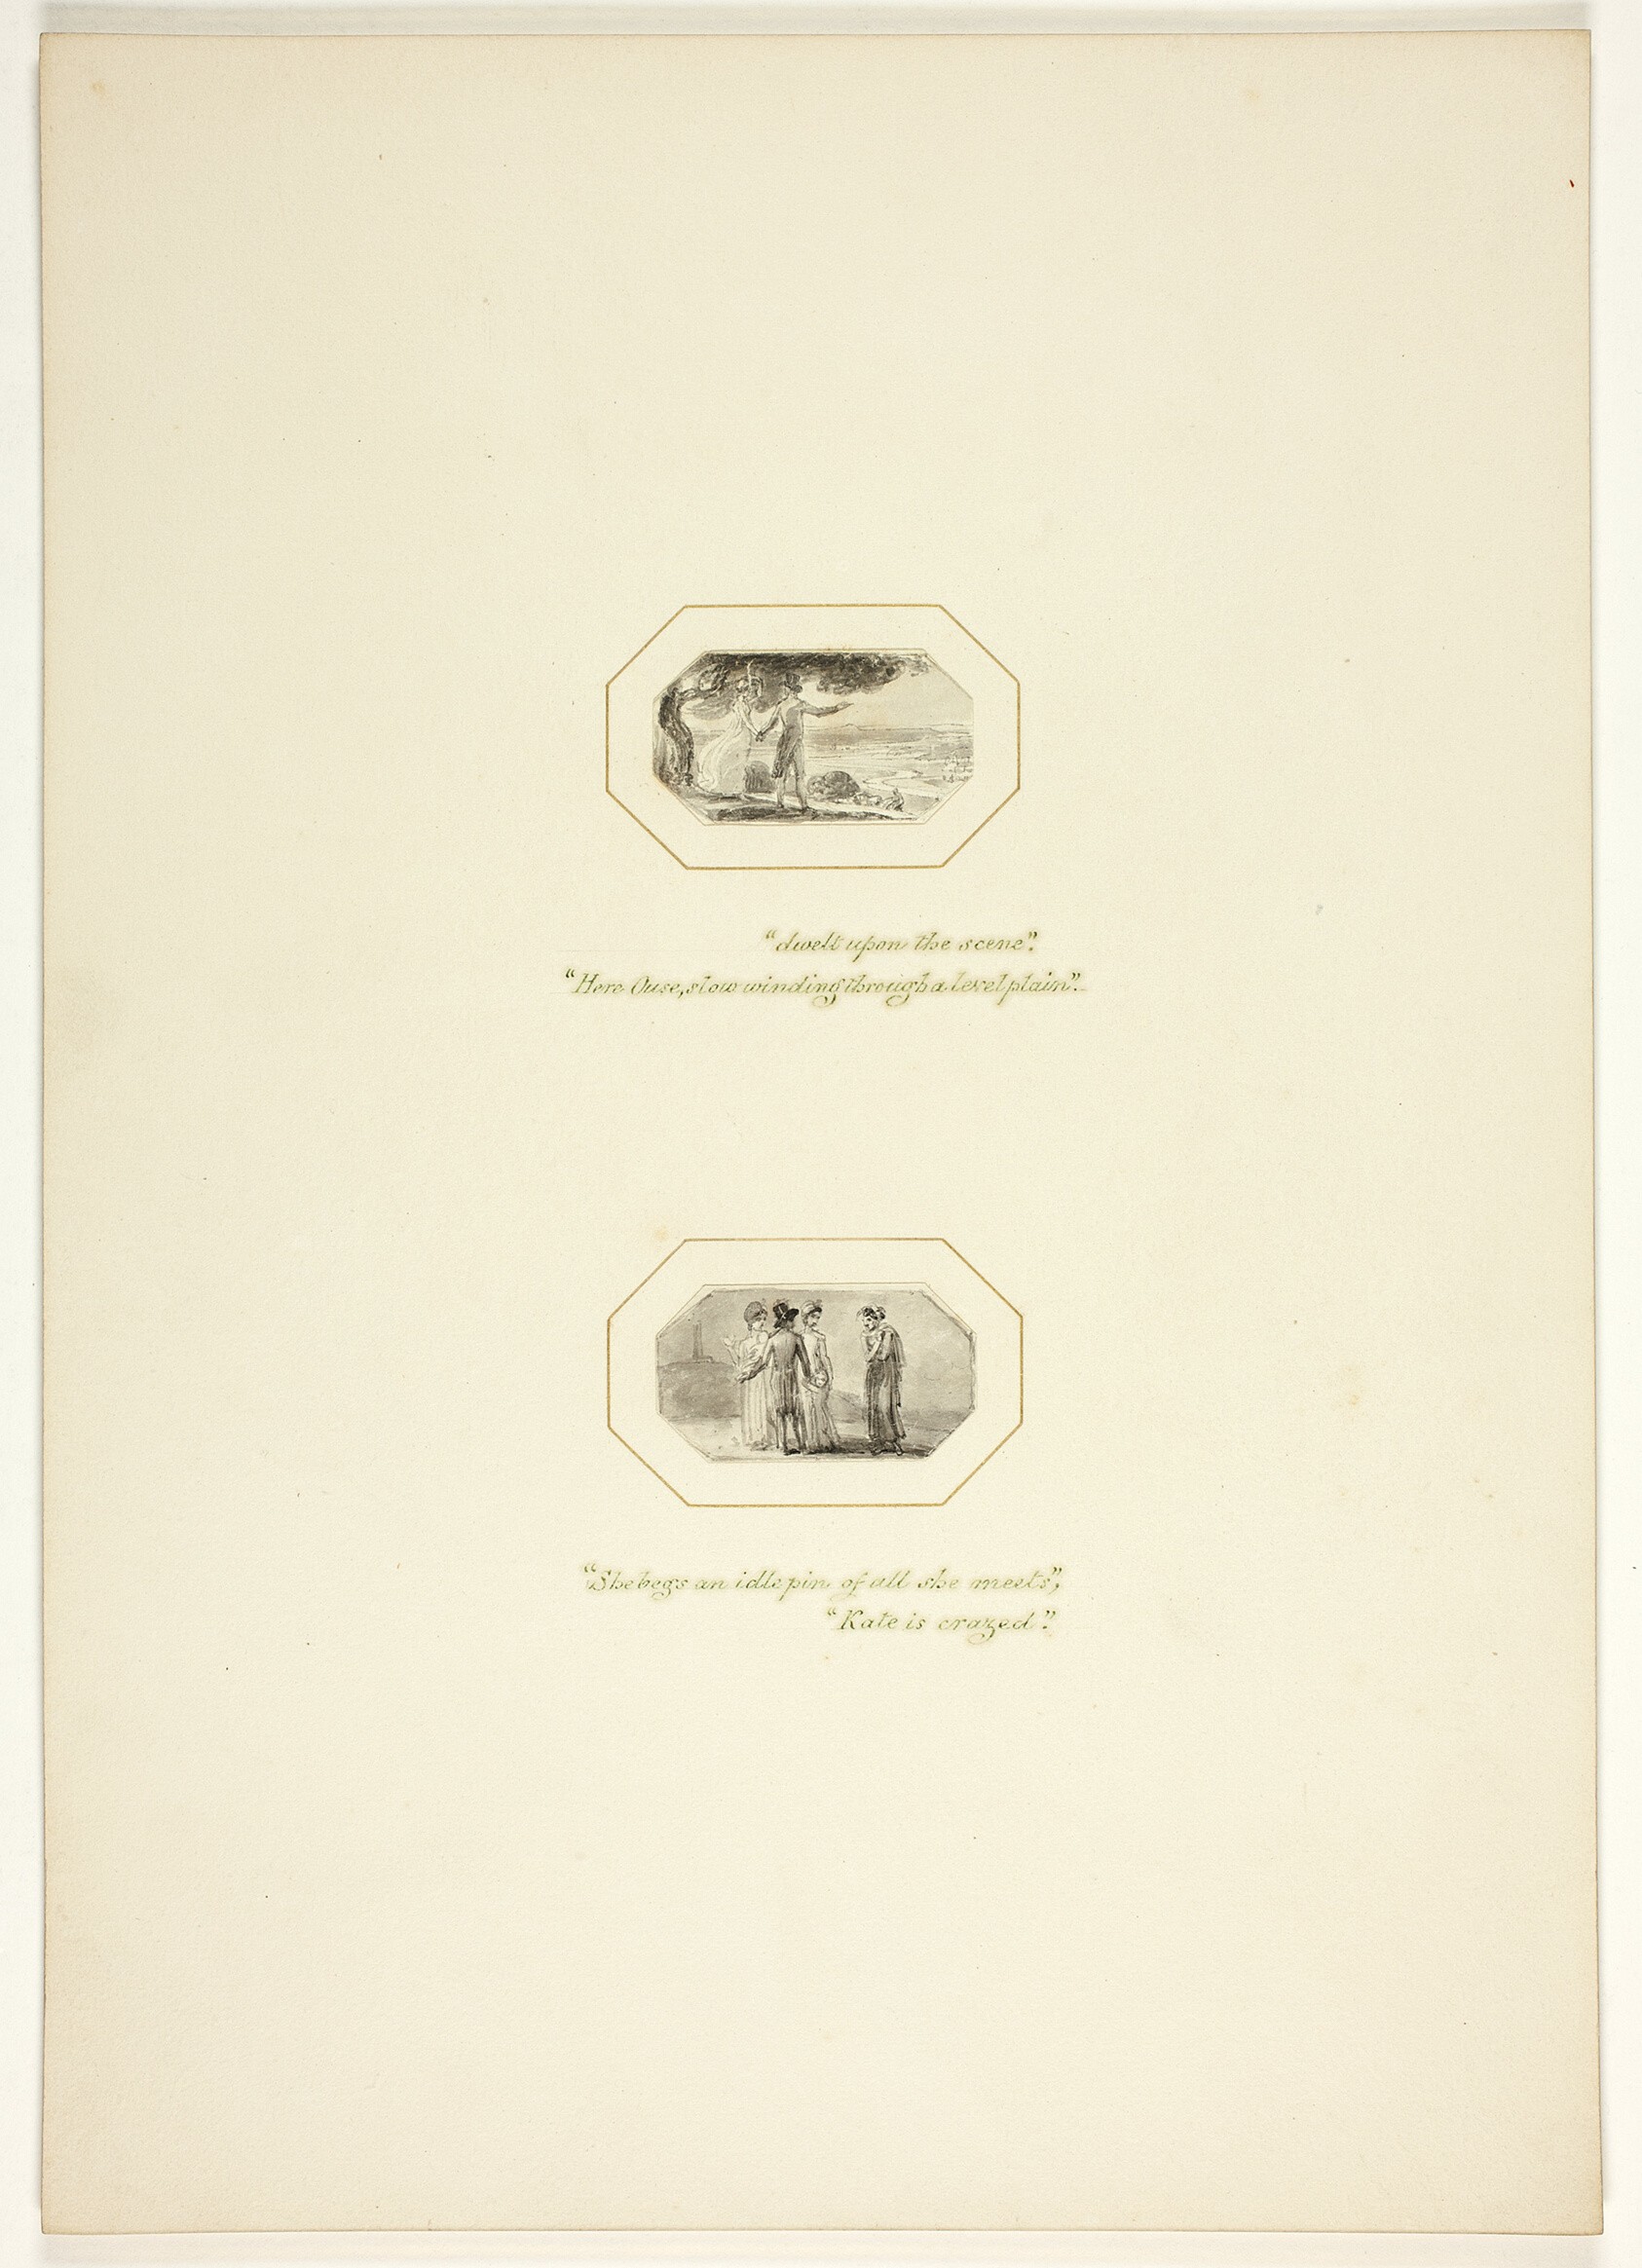 “dwelt upon the scene”.
“Here Ouse, slow winding through a level plain”.
“She begs an idle pin of all she meets”,
“Kate is crazed”.